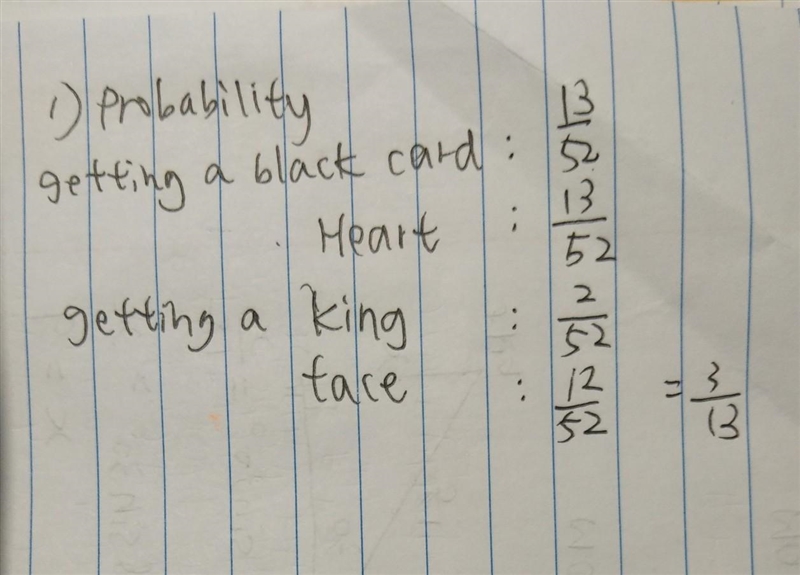 1) Probability
getting a black card : 13/52
Heart : 13/52
getting a king : 2/52
face : 12/52 = 3/13